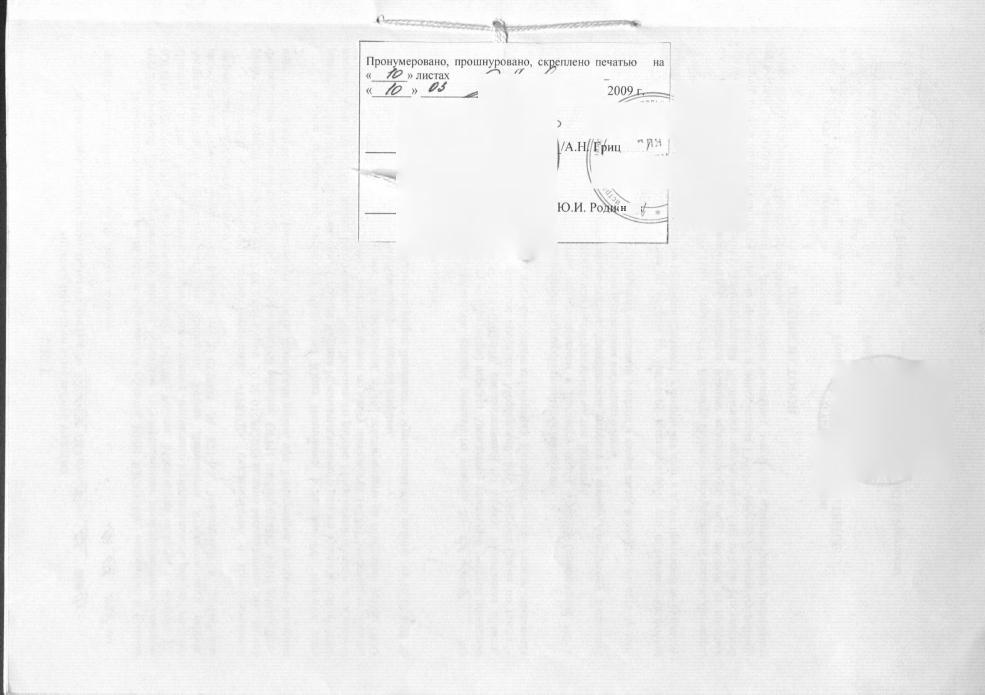 Пронумеровано, прошнуровано, скреплено печатью на
« 10 » листах
« 10 » 03 2009 г.
/А.Н. Гриц
Ю.И. Родин